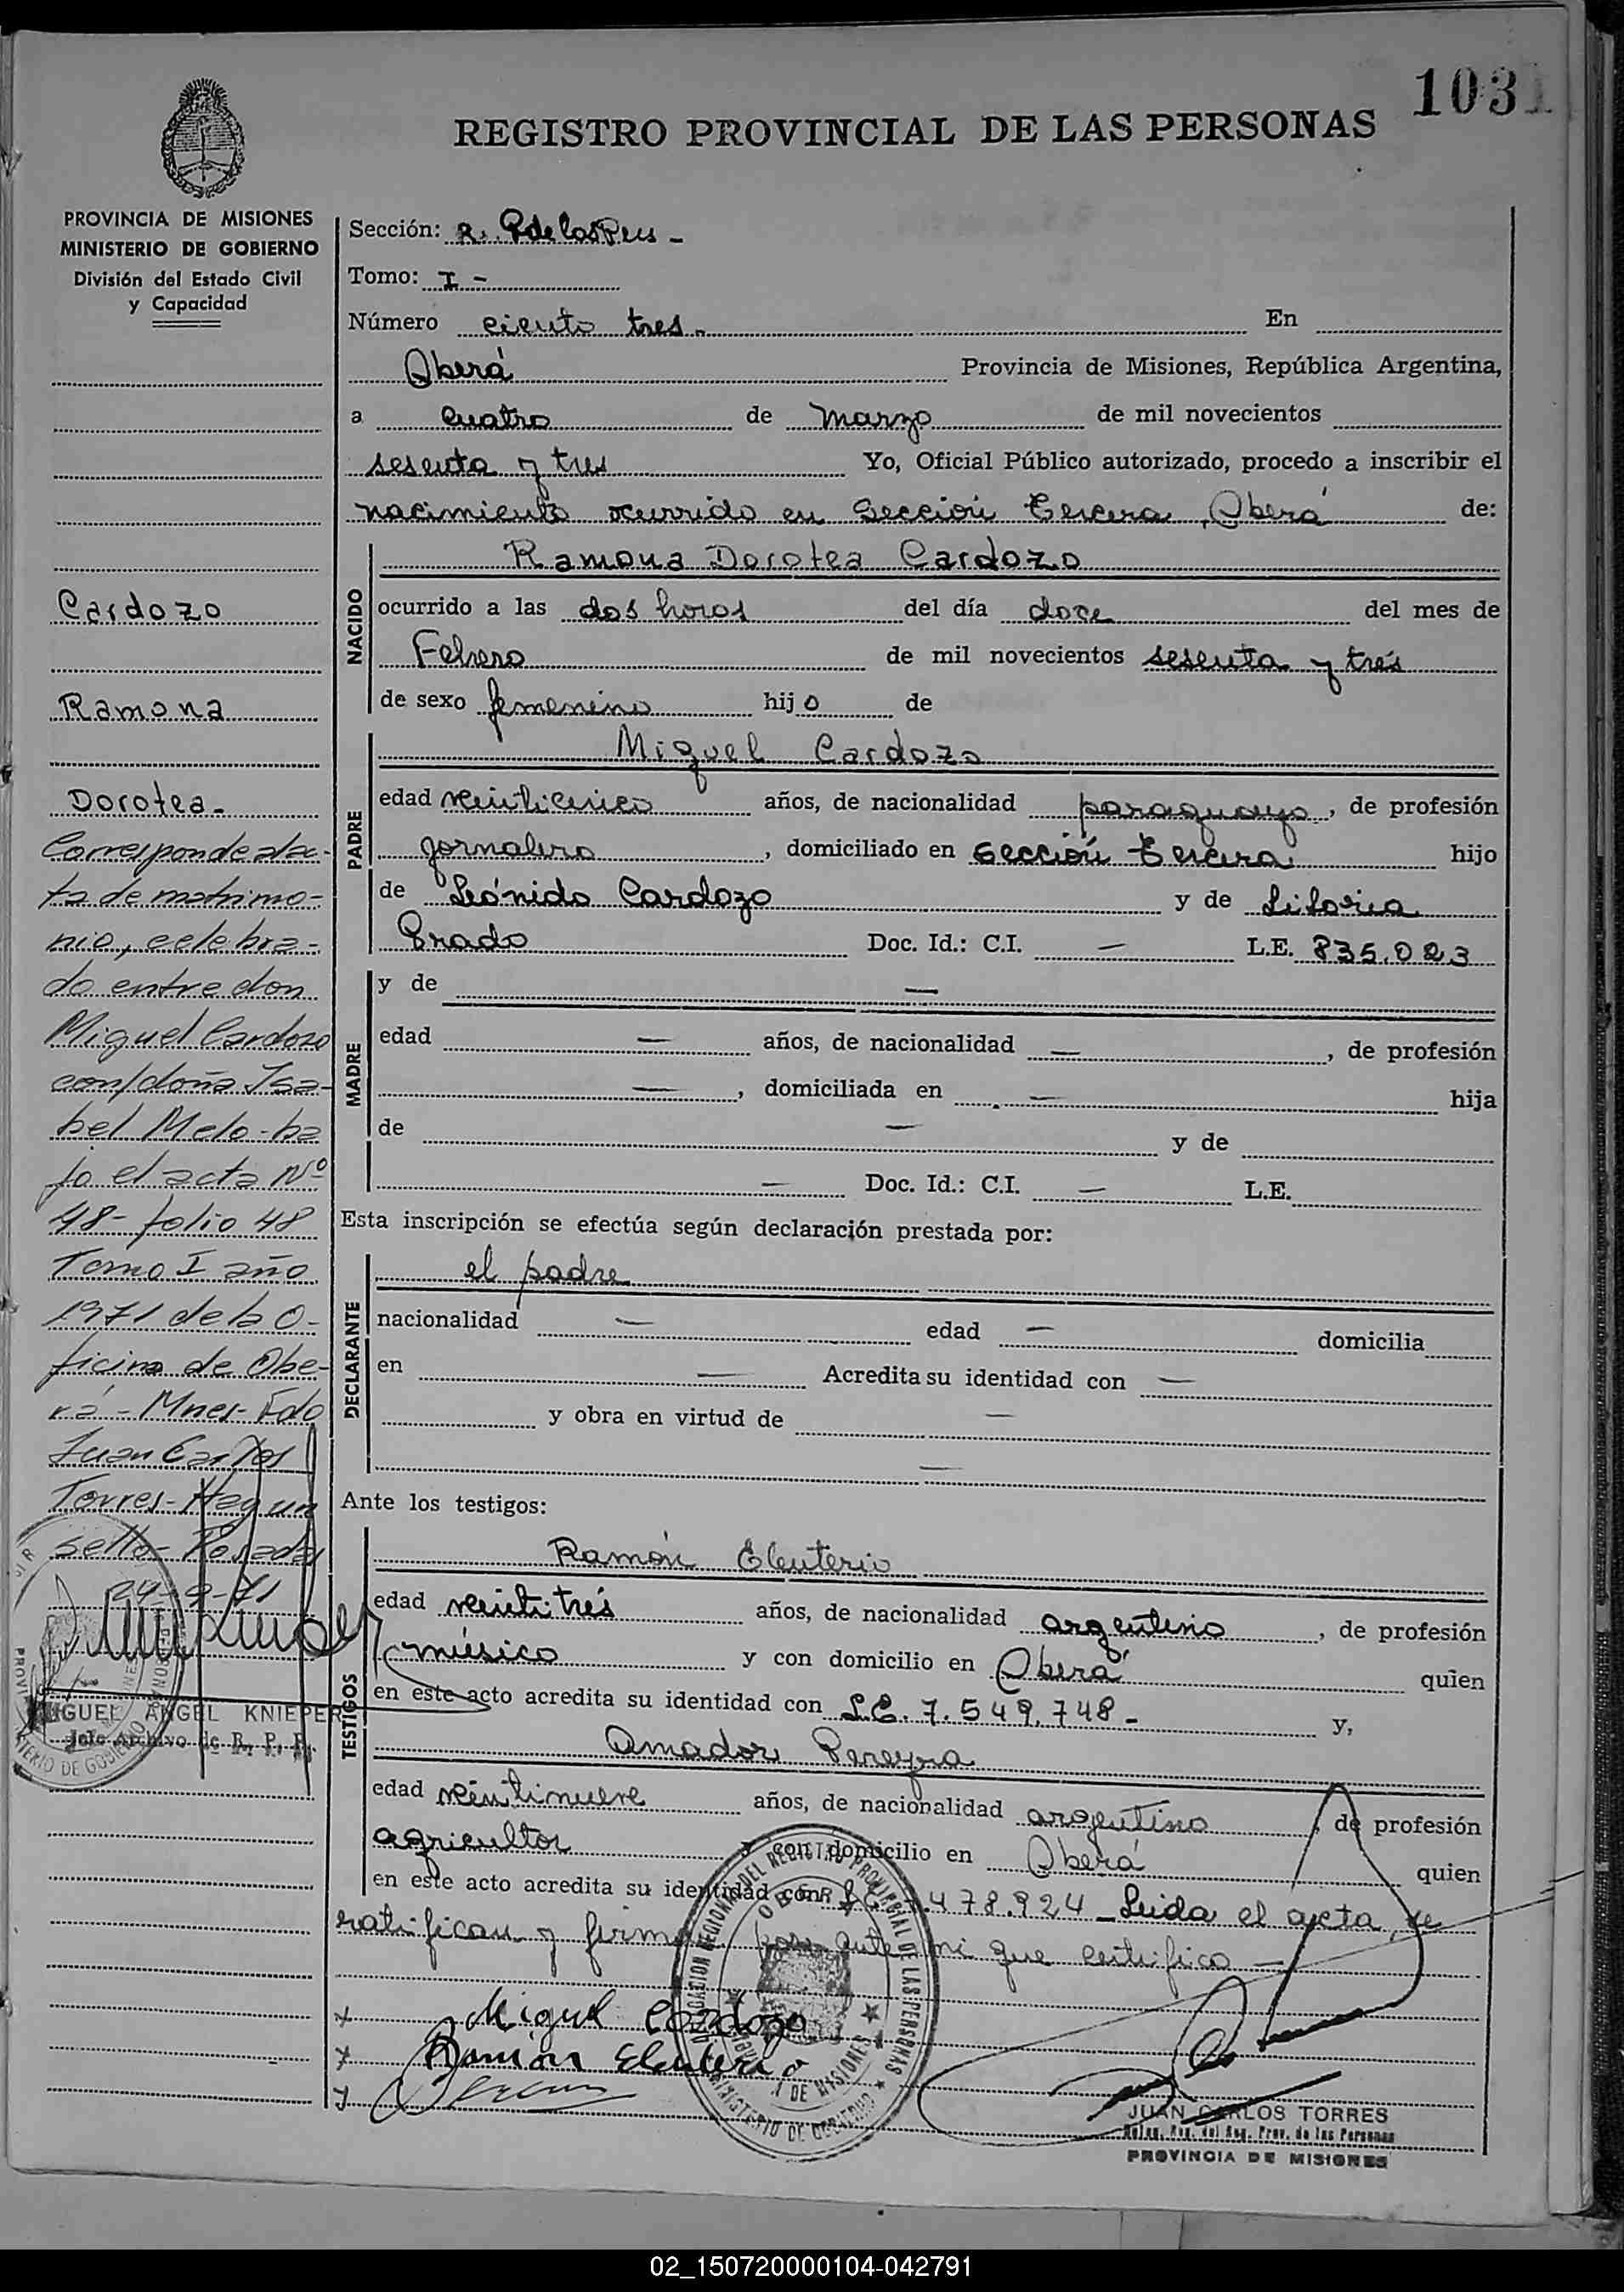 103
REGISTRO PROVINCIAL DE LAS PERSONAS
PROVINCIA DE MISIONES
MINISTERIO DE GOBIERNO
División del Estado Civil
y Capacidad
Cardozo
Ramona
Dorotea-
Corresponde ac-
ta de matrimo-
nio, celebra-
do entre don
Miguel Cardozo
con/doña Isa-
bel Melo-ba
jo el acta Nº
48- folio 48
Tomo I año
1971 de la O-
ficina de Obe-
rá - Mnes- Fdo
Juan Carlos
Torres- Hay un
sello- Posadas
24-9-71
MIGUEL ANGEL KNIEPER
Jefe Archivo de R. P. P.
Sección: R. P de las Pers -
Tomo: I -
Número ciento tres- En
Oberá Provincia de Misiones, República Argentina,
a cuatro de marzo de mil novecientos
sesenta y tres Yo, Oficial Público autorizado, procedo a inscribir el
nacimiento ocurrido en Sección tercera, Oberá de:
NACIDO
Ramona Dorotea Cardozo
ocurrido a las dos horas del día doce del mes de
Febrero de mil novecientos sesenta y tres
de sexo femenino hijo de
PADRE
Miguel Cardozo
edad veinticinco años, de nacionalidad paraguayo, de profesión
jornalero, domiciliado en Sección tercera hijo
de Leónido Cardozo y de Litoria
Prado Doc. Id.: C.I. — L.E. 835.023
MADRE
y de —
edad — años, de nacionalidad —, de profesión
—, domiciliada en — hija
de — y de
— Doc. Id.: C.I. — L.E.
Esta inscripción se efectúa según declaración prestada por:
DECLARANTE
el padre
nacionalidad — edad — domicilia
en — Acredita su identidad con —
y obra en virtud de —
—
Ante los testigos:
TESTIGOS
Ramón Eleuterio
edad veintitrés años, de nacionalidad argentino, de profesión
músico y con domicilio en Oberá quien
en este acto acredita su identidad con L.E. 7.549.748- y,
Amador Pereyra
edad veintinueve años, de nacionalidad argentino, de profesión
agricultor con domicilio en Oberá quien
en este acto acredita su identidad con L.E. .478.924 - Leida el acta, se
ratifican y firman por ante mi que certifico —
x Miguel Cardozo
x Ramón Eleuterio
JUAN CARLOS TORRES
Deleg. Reg. del Reg. Prov. de las Personas
PROVINCIA DE MISIONES
02_150720000104-042791